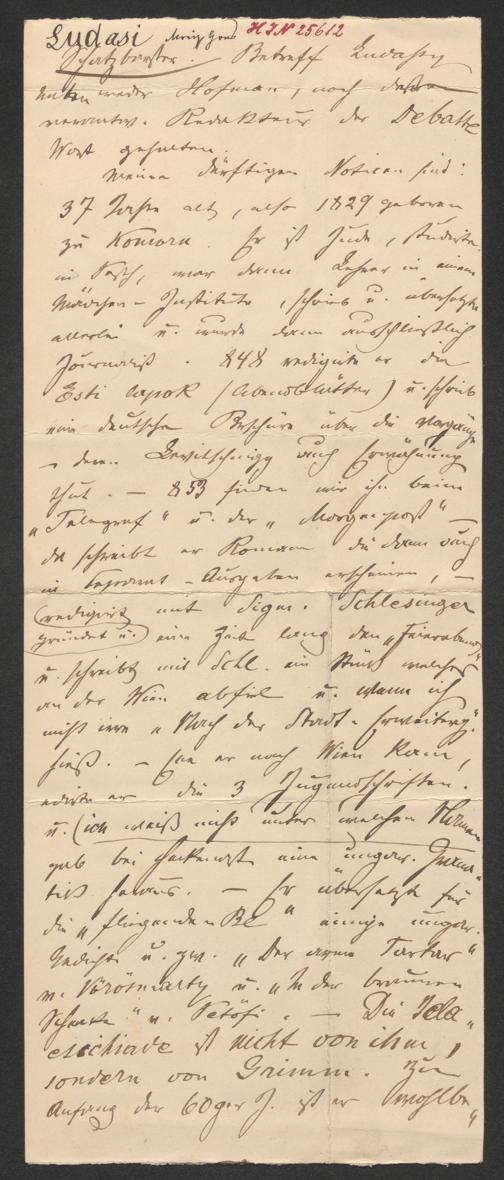 Ludasi Moriz Gans H.I.N 25612
Schatzbarster. Betreff Ludassy
haben weder Hofman, noch dessen
verantw. Redakteur der Debatte
Wort gehalten.
Meine dürftigen Notizen sind:
37 Jahre alt, also 1829 geboren
zu Komorn. Er ist Jude, studirte
in Pesth, war dann Lehrer in einem
Mädchen-Institute, schrieb u. übersetzte
allerlei u. wurde dann ausschließlich
Journalist. 848 redigirte er die
Esti lapok (Abendblätter) u. schrieb
eine deutsche Broschüre über die Vorgänge
- deren Levitschnigg auch Erwähnung
thut. - 853 finden wir ihn beim
"Telegraf" u. der "Morgenpost" -
da schreibt er Romane die dann auch
in Separat-Ausgaben erscheinen, -
(redigirt mit Sigm. Schlesinger
gründet u.) eine Zeit lang den "Feierabend"
u. schreibt mit Schl. ein Stück welches
an der Wien abfiel u. wenn ich
nicht irre "Nach der Stadt-Erweiterg."
hieß. - Ehe er nach Wien kam,
edirte er die 3 Jugendschriften.
u. (ich weiß nicht unter welchem Namen
gab bei Hackenast eine ungar. Gramma-
tik heraus. - Er übersetzte für
die "fliegenden Bl" einige ungar.
Gedichte u. zw. "Der arme Tartar"
v. Vörösmarty u. "In der braunen
Schenke" v. Petöfi. - Die Tela
eischiade ist nicht von ihm,
sondern von Grimm. Zu
Anfang der 60ger J. ist er wohlbe"